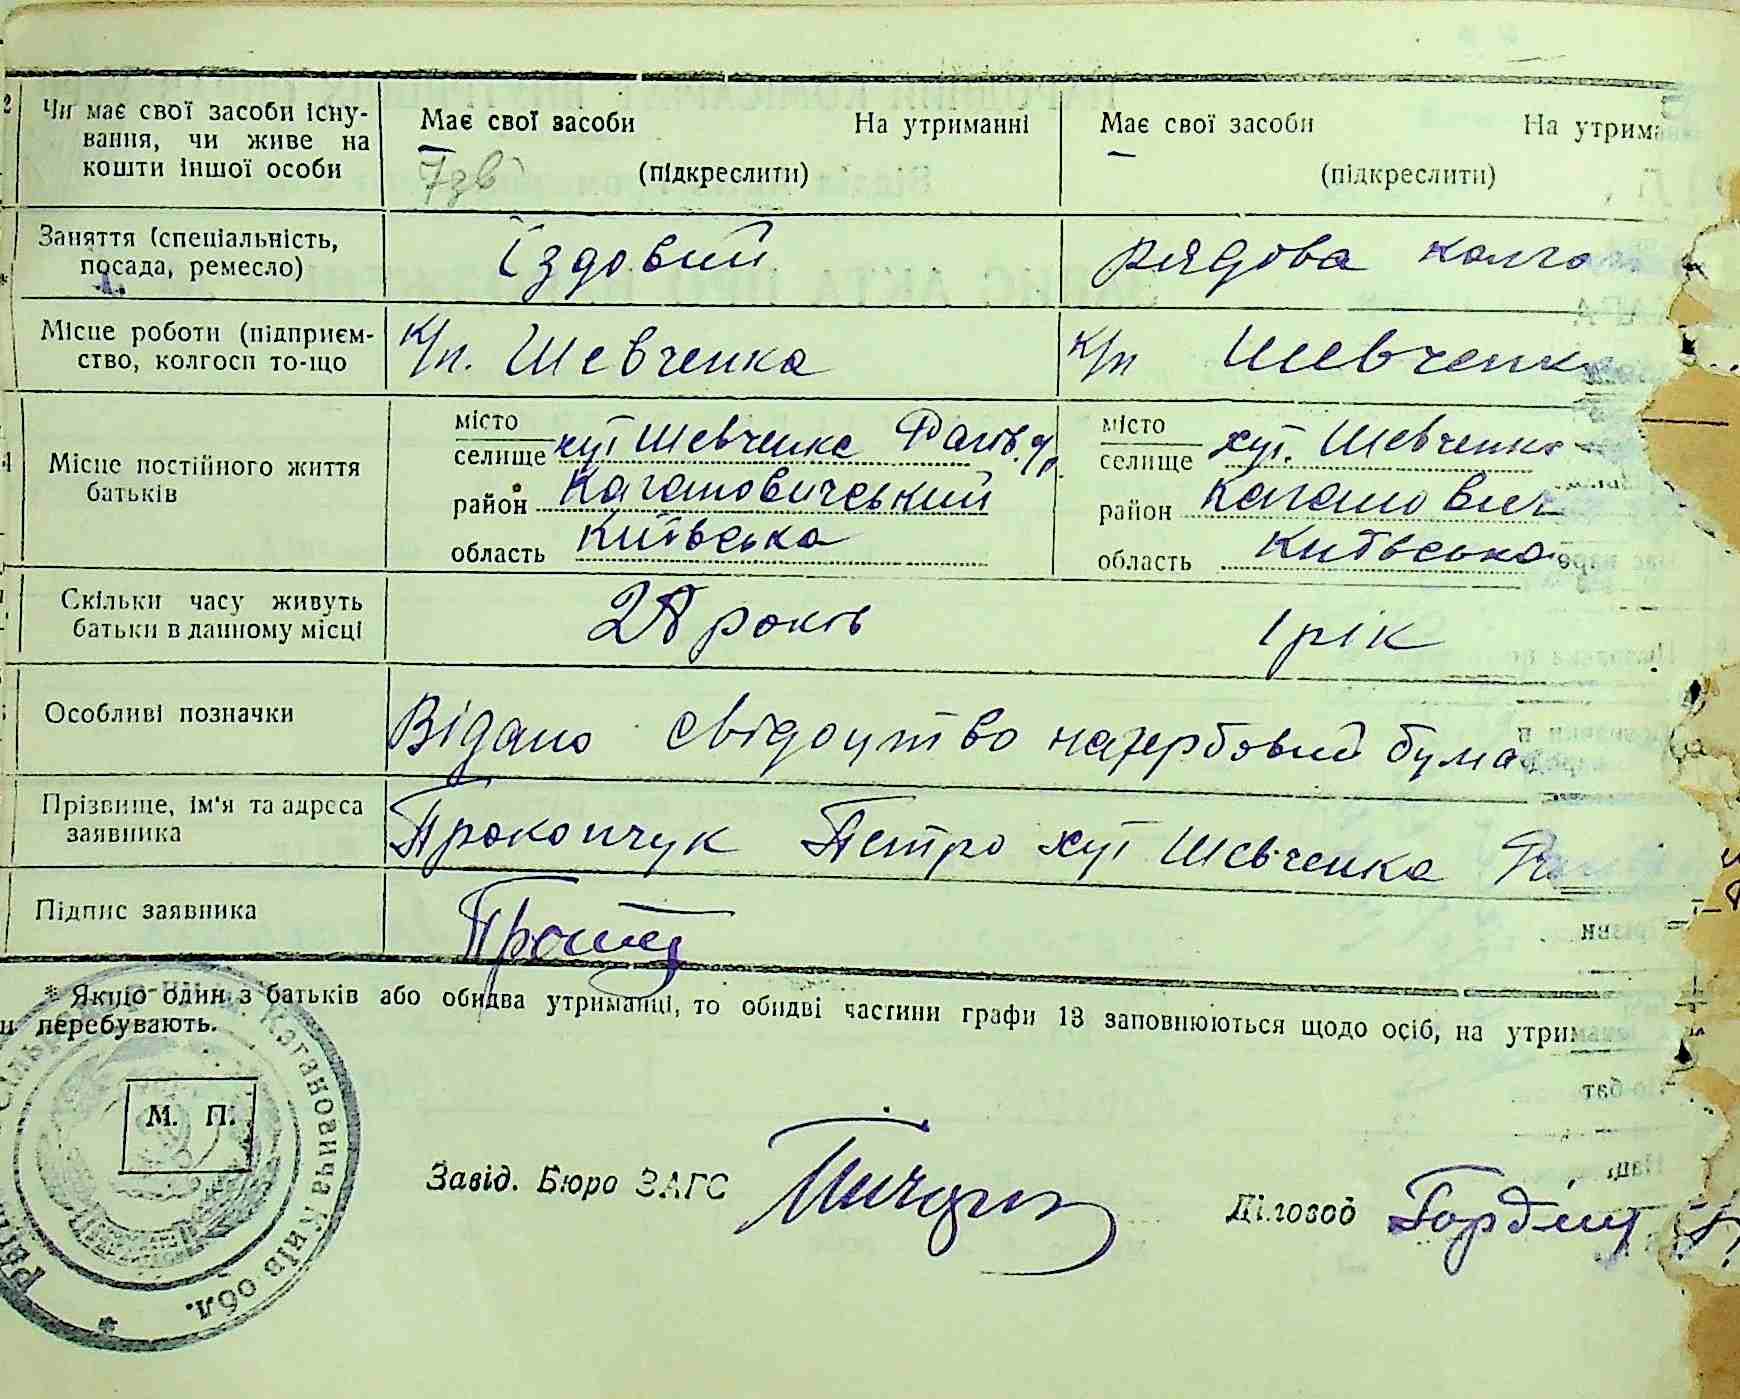 2 Чи має свої засоби існу- Має свої засоби На утриманні Має свої засоби На утрима
вання, чи живе на
кошти іншої особи (підкреслити) (підкреслити)
Заняття (спеціальність, Їздовий рядова колго
посада, ремесло)
Місце роботи (підприєм- к/п. Шевченка к/п Шевченк
ство, колгосп то-що
Місце постійного життя місто місто
батьків селище хут Шевченка селище хут. Шевченка
район Кагановичський район Каганович
область Київська область Київська
Скільки часу живуть 28 років 1 рік
батьки в данному місці
Особливі позначки Відано свідоцтво на гербовий бума
Прізвище, ім'я та адреса Прокопчук Петро хут Шевченка
заявника
Підпис заявника
* Якщо один з батьків або обидва утриманці, то обидві частини графи 13 заповнюються щодо осіб, на утрим
и перебувають.
Кагановича Київ обл.
М. П.
Завід. Бюро ЗАГС Діловод